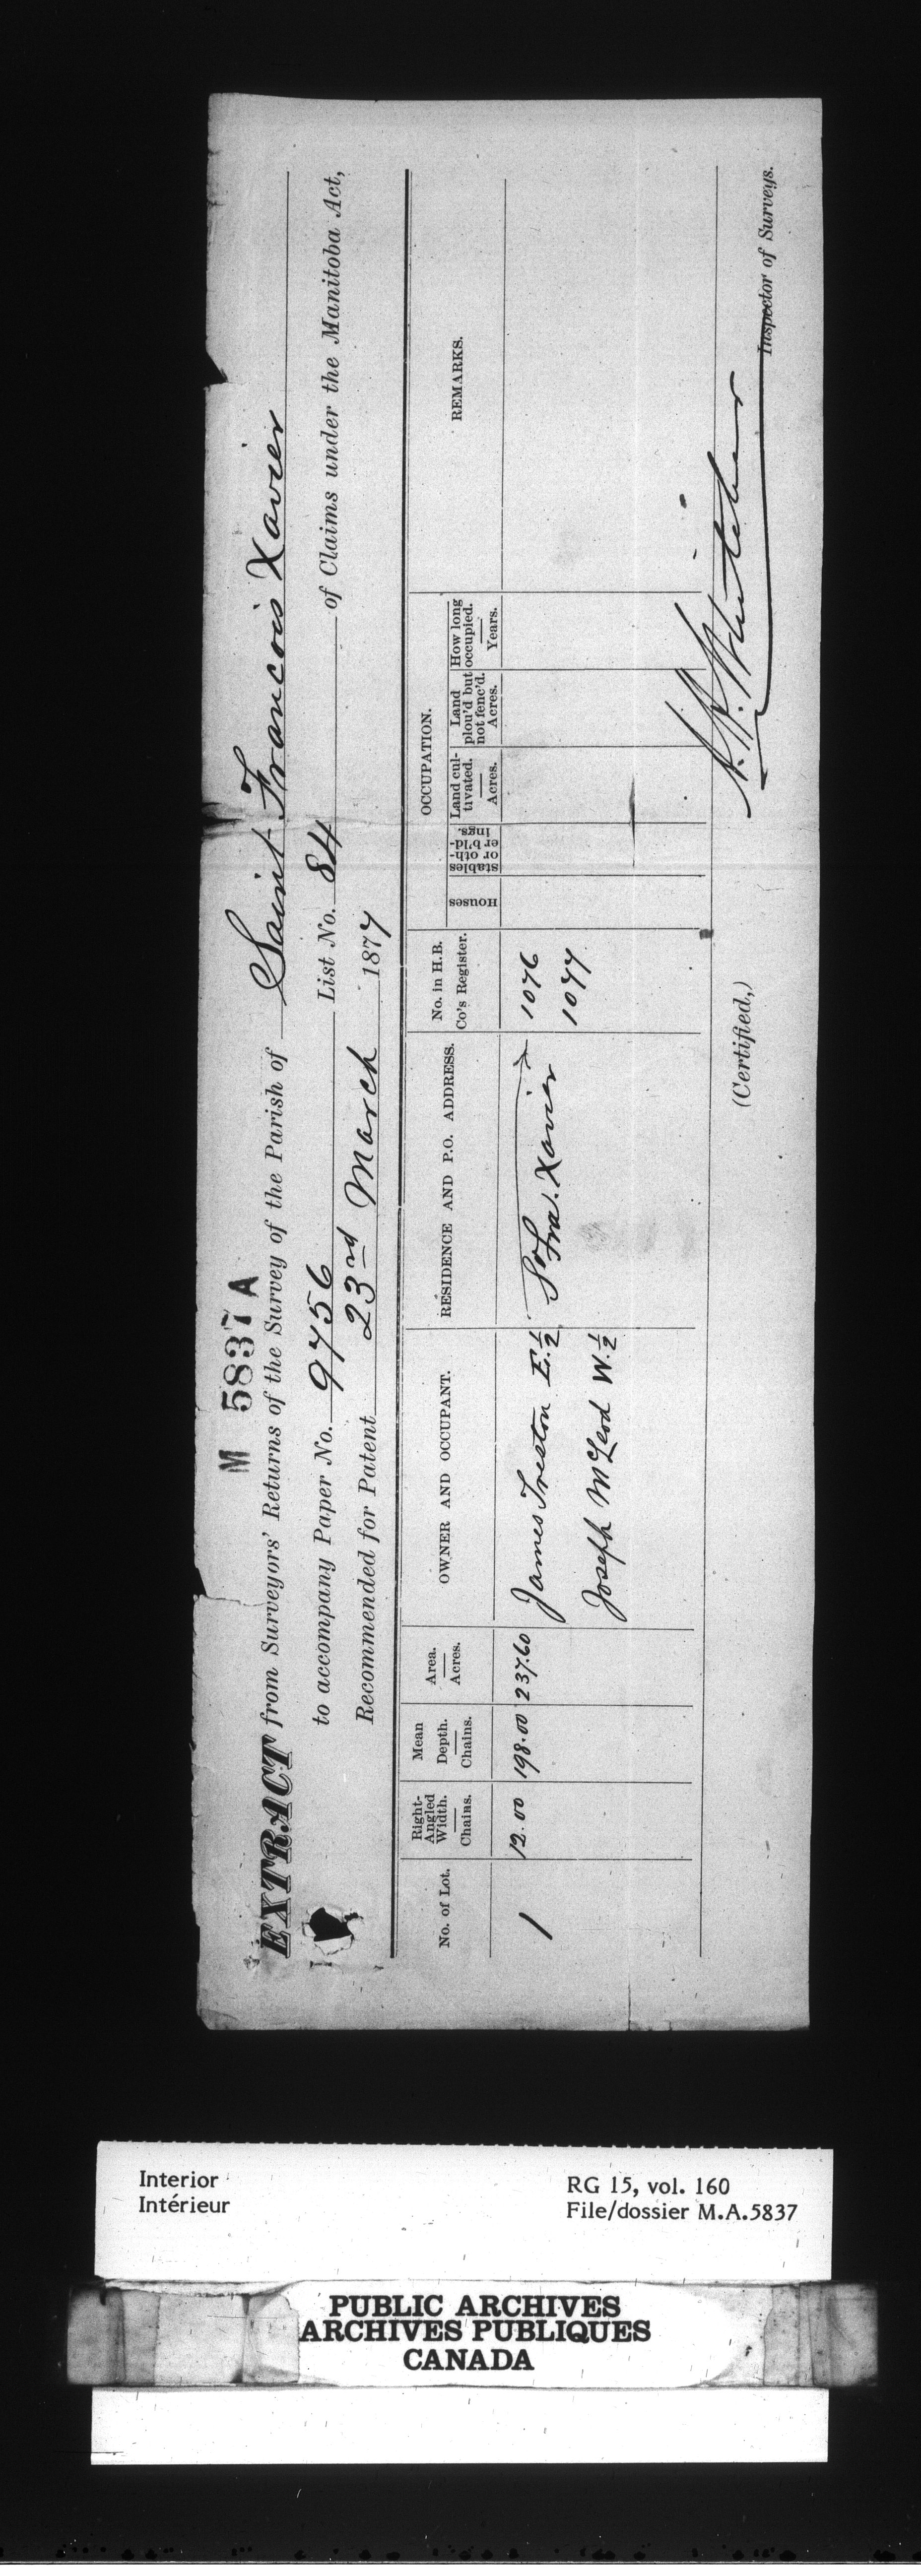 M 5837 A
EXTRACT from Surveyors' Returns of the Survey of the Parish of Saint Francois Xavier
to accompany Paper No. 9756 List No. 84 of Claims under the Manitoba Act,
Recommended for Patent 23rd March 1877
No. of Lot.
Right-Angled Width. Chains.
Mean Depth. Chains.
Area. Acres.
OWNER AND OCCUPANT.
RESIDENCE AND P.O. ADDRESS.
No. in H.B. Co's Register.
OCCUPATION.
Houses
stables or oth-er b'ld-ings.
Land cul-tivated. Acres.
Land plou'd but not fenc'd. Acres.
How long occupied. Years.
REMARKS.
1 12.00 198.00 237.60 James E. ½ Xavier 1076
1077
Joseph McLeod W. ½
(Certified,)
Inspector of Surveys.
Interior
Intérieur
RG 15, vol. 160
File/dossier M.A.5837
PUBLIC ARCHIVES
ARCHIVES PUBLIQUES
CANADA